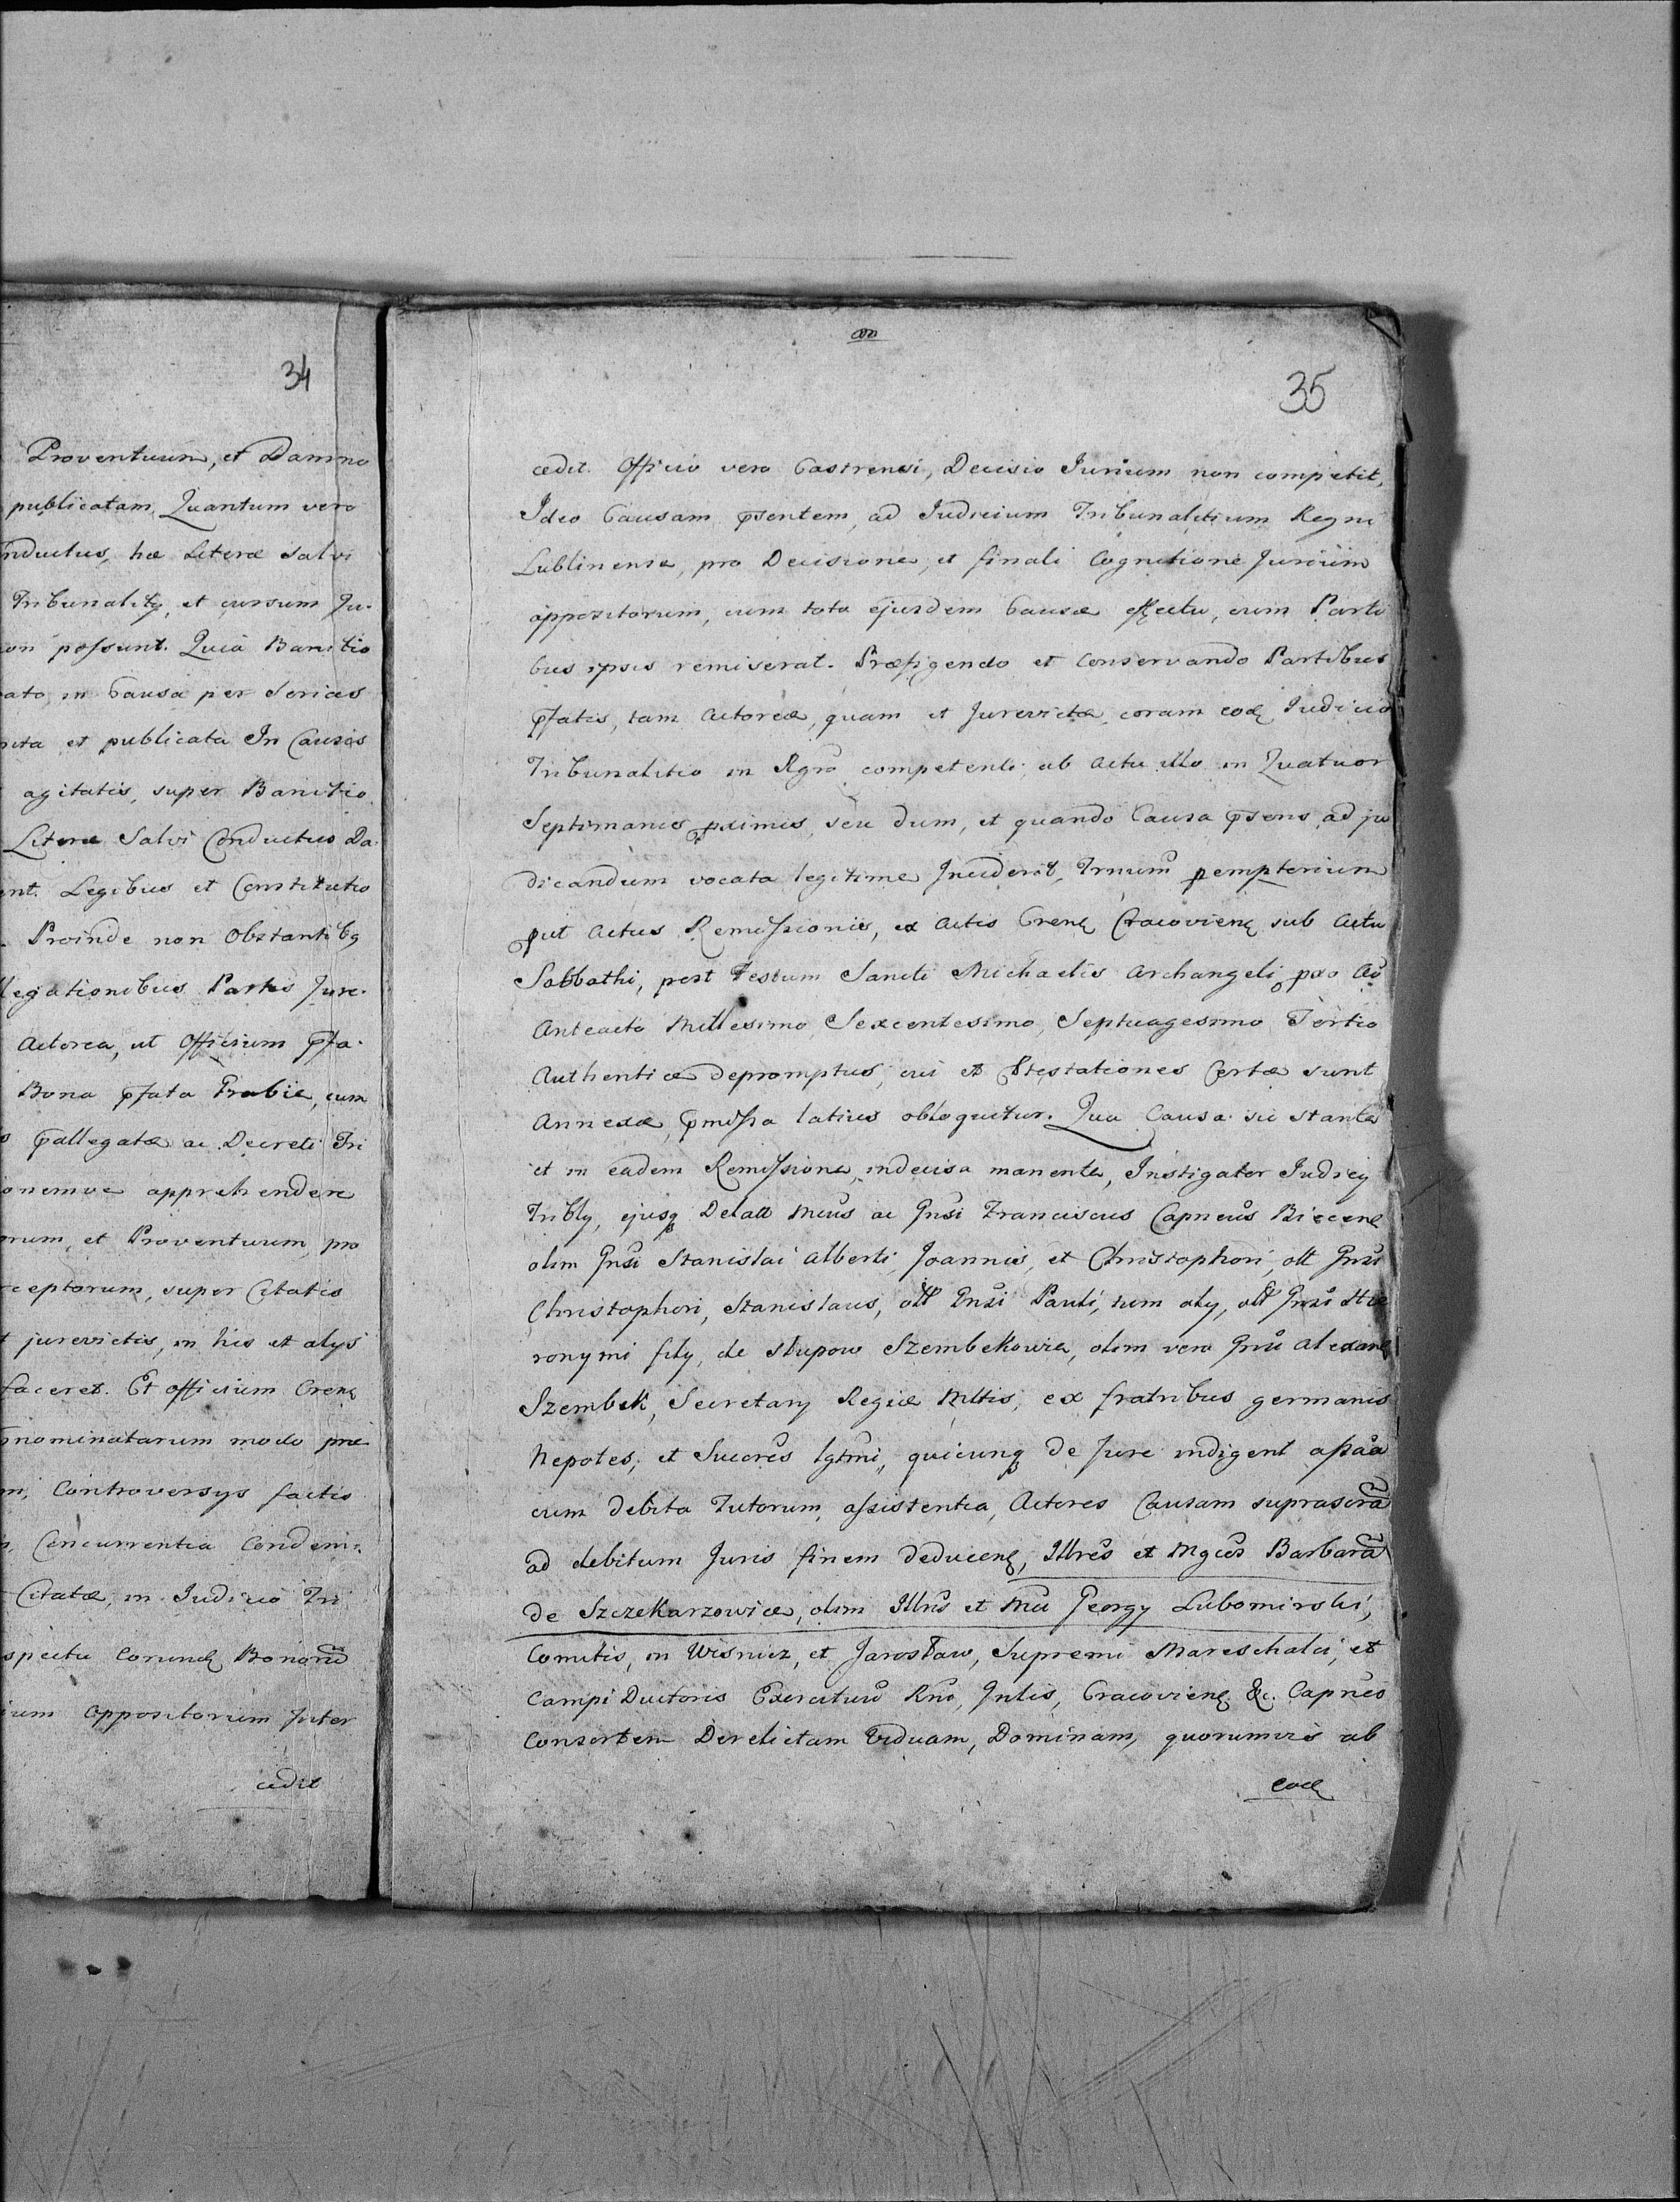 34
Proventuum, et Damno
publicatam, Quantum vero
nductus, hæ Literæ Salvi
Tribunalitÿ, et cursum Ju-
on possunt. Quia Banitio
ato, in Causa per Series
et publicata In Causis
agitatis, super Banitio
Literæ Salvi Conductus Da-
ent. Legibus et Constitutio
Proinde non Obstantibq
llegationibus Partis Jure-
Actorea, ut Officium pfa-
Bona pfata Grabie, cum
pallegatæ ac Decreti Tri
onemve apprehendere
orum, et Proventuum pro
ceptorum, super Citatis
t jurevictis, in his et alÿs
faceret. Et officium Cren
nominatarum modo præ
m, Controversÿs factis
Concurrentia Condem-
Citatæ, in Judicio Tri
spectu eorund Bonorũ
ium oppositorum Inter
cedit
35
cedit. Officio vero Castrensi, Decisio Iurium non competit,
Ideo Causam psentem, ad Iudicium Tribunalitium Regni
Lublinense, pro Decisione, et finali Cognitione Jurium
oppositorum, cum toto ejusdem Causæ effectu, cum Parti
bus ipsis remiserat. Præfigendo et Conservando Partibus
pfatis, tam Actoreæ, quam et Jurevictæ, coram eod Iudicio
Tribunalitio in Rgro competenti, ab Actu illo in Quatuor
Septimanis pximis, seu dum, et quando Causa psens, ad ju
dicandum vocata legitime Inciderit, Trnum pemptorium
put Actus Remissionis, ex Actis Cren Cracovien sub Actu
Sabbathi, post Festum Sancti Michaelis Archangeli pxo Ao
Anteacto Millesimo Sexcentesimo Septuagesimo Tertio
Authentice depromptus, cui et Ptestationes Certæ sunt
Annexæ, pmissa latius obloquitur. Qua Causa sic stante
et in eadem Remissione, indecisa manente, Instigator Iudicÿ
Tribly, ejusq Delatt Mcus ac Gnsi Franciscus Capneus Biecen
olim Gnsi Stanislai Alberti, Joannis, et Christophori, olt Gnsi
Christophori, Stanislaus, olt Gnsi Pauli, tum alÿ, olt Gnsi Hie
ronymi filÿ, de Słupow Szembekowie, olim vero Gnsi Alexan
Szembek, Secretarÿ Regiæ Mttis, ex fratribus germanis
Nepotes, et Succres lgtmi, quicunq de Jure indigent
cum debita Tutorum, assistentia, Actores Causam suprascrã
ad debitum Juris finem deducen, Illres et Mgcos Barbarã
de Szczekarzowice, olim Illris et Mci Georgÿ Lubomirski,
Comitis, in Wisnicz, et Jarosław, Supremi Mareschalci, et
Campi Ductoris Exercituũ Rni, Gnlis, Cracovien &c. Capnes
Consortem Derelictam Viduam, Dominam, quorumvis ab
eod